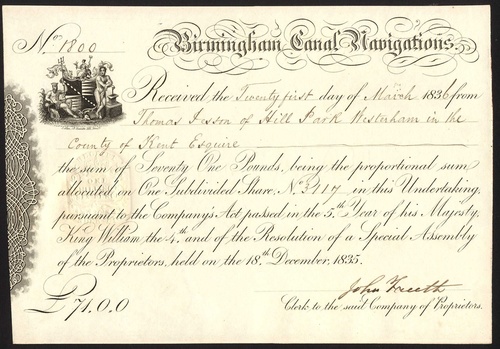 No. 1800
Birmingham Canal Navigations.
Received the Twenty first day of March 1836 from
Thomas of Hill Park Westerham in the
County of Kent Esquire
the sum of Seventy One Pounds, being the proportional sum
allocated on One Subdivided Share, No. 3417 in this Undertaking,
pursuant to the Company's Act passed in the 5th. Year of his Majesty,
King William the 4th. and of the Resolution of a Special Assembly
of the Proprietors, held on the 18th. December, 1835.
£71.0.0
John Freeth
Clerk to the said Company of Proprietors.